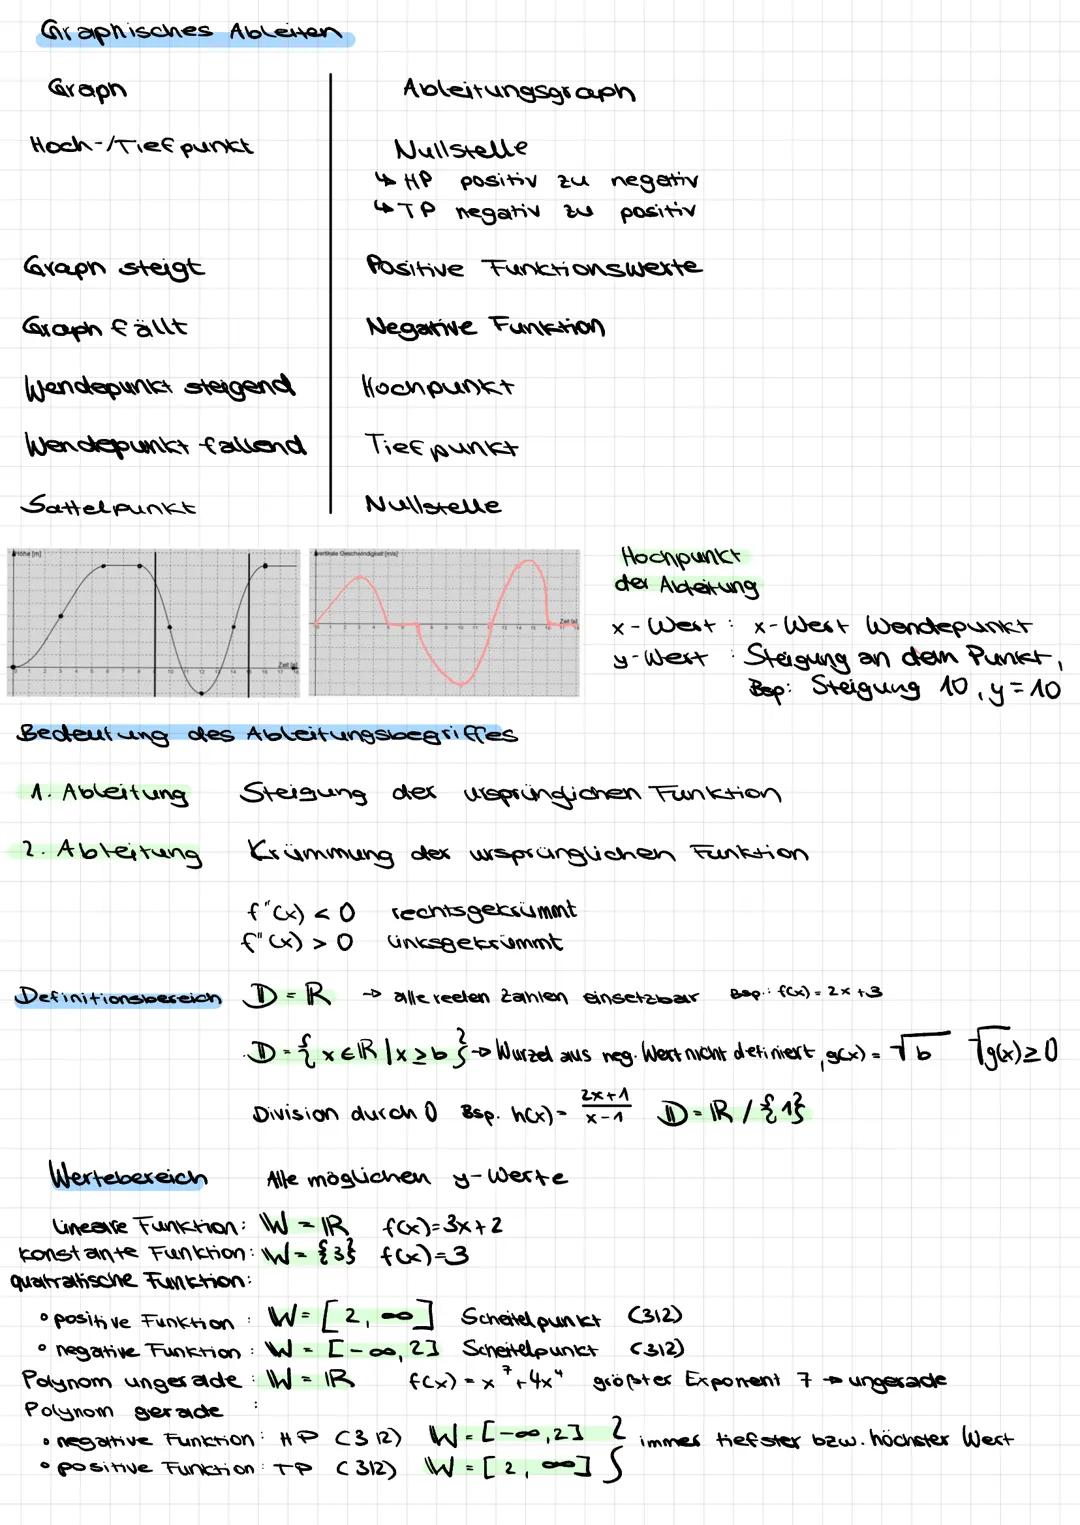 Graphisches Ableiten
Graph Ableitungsgraph
Hoch-/Tiefpunkt Nullstelle
↳ HP positiv zu negativ
↳ TP negativ zu positiv
Graph steigt Positive Funktionswerte
Graph fällt Negative Funktion
Wendepunkt steigend Hochpunkt
Wendepunkt fallend Tiefpunkt
Sattelpunkt Nullstelle
Höhe [m]
vertikale Geschwindigkeit [m/s]
Zeit [s]
Zeit [s]
Hochpunkt
der Ableitung
x-Wert : x-Wert Wendepunkt
y-Wert : Steigung an dem Punkt,
Bsp: Steigung 10, y=10
Bedeutung des Ableitungsbegriffes
1. Ableitung Steigung der ursprünglichen Funktion
2. Ableitung Krümmung der ursprünglichen Funktion
f"(x) < 0 rechtsgekrümmt
f"(x) > 0 linksgekrümmt
Definitionsbereich D = ℝ → alle reelen Zahlen einsetzbar Bsp.: f(x) = 2x+3
D = { x ∈ ℝ | x ≥ b } → Wurzel aus neg. Wert nicht definiert, g(x) = √b √g(x) ≥ 0
Division durch 0 Bsp. h(x) = (2x+1)/(x-1) D = ℝ / {1}
Wertebereich Alle möglichen y-Werte
Lineare Funktion: W = ℝ f(x)=3x+2
konstante Funktion: W = {3} f(x)=3
quatratische Funktion:
• positive Funktion : W = [2, ∞] Scheitelpunkt (3|2)
• negative Funktion : W = [-∞, 2] Scheitelpunkt (3|2)
Polynom ungerade : W = ℝ f(x) = x⁷+4x⁴ größter Exponent 7 → ungerade
Polynom gerade :
• negative Funktion : HP (3|2) W = [-∞, 2] } immer tiefster bzw. höchster Wert
• positive Funktion : TP (3|2) W = [2, ∞]